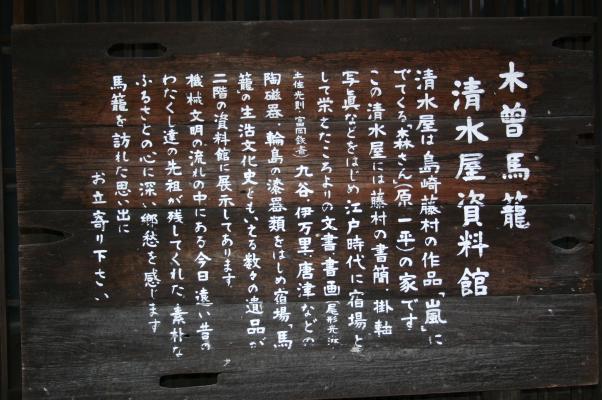 木曽馬籠
清水屋資料館
清水屋は島崎藤村の作品「嵐」に
でてくる森さん(原一平)の家です
この清水屋には藤村の書簡、掛軸
写真などをはじめ江戸時代に宿場と
して栄えたころよりの文書、書画(尾形光琳、
土佐光則、富岡鉄斎)九谷、伊万里、唐津などの
陶磁器、輪島の漆器類をはじめ宿場「馬
籠の生活文化史」ともいえる数々の遺品が
二階の資料館に展示してあります
機械文明の流れの中にある今日、遠い昔の
わたくし達の先祖が残してくれた、素朴な
ふるさとの心に深い郷愁を感じます
馬籠を訪れた思い出に
お立寄り下さい